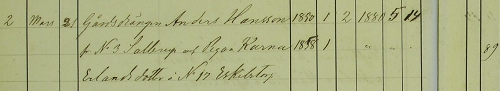 2 Mars 21 Gårdsdrängen Anders Hansson 1850 1 2 1880 5 14
fr N. 3 Sallerup och Pigan Karna 1858 1 " " " 89
Erlandsdotter i N. 17 Eskilstorp